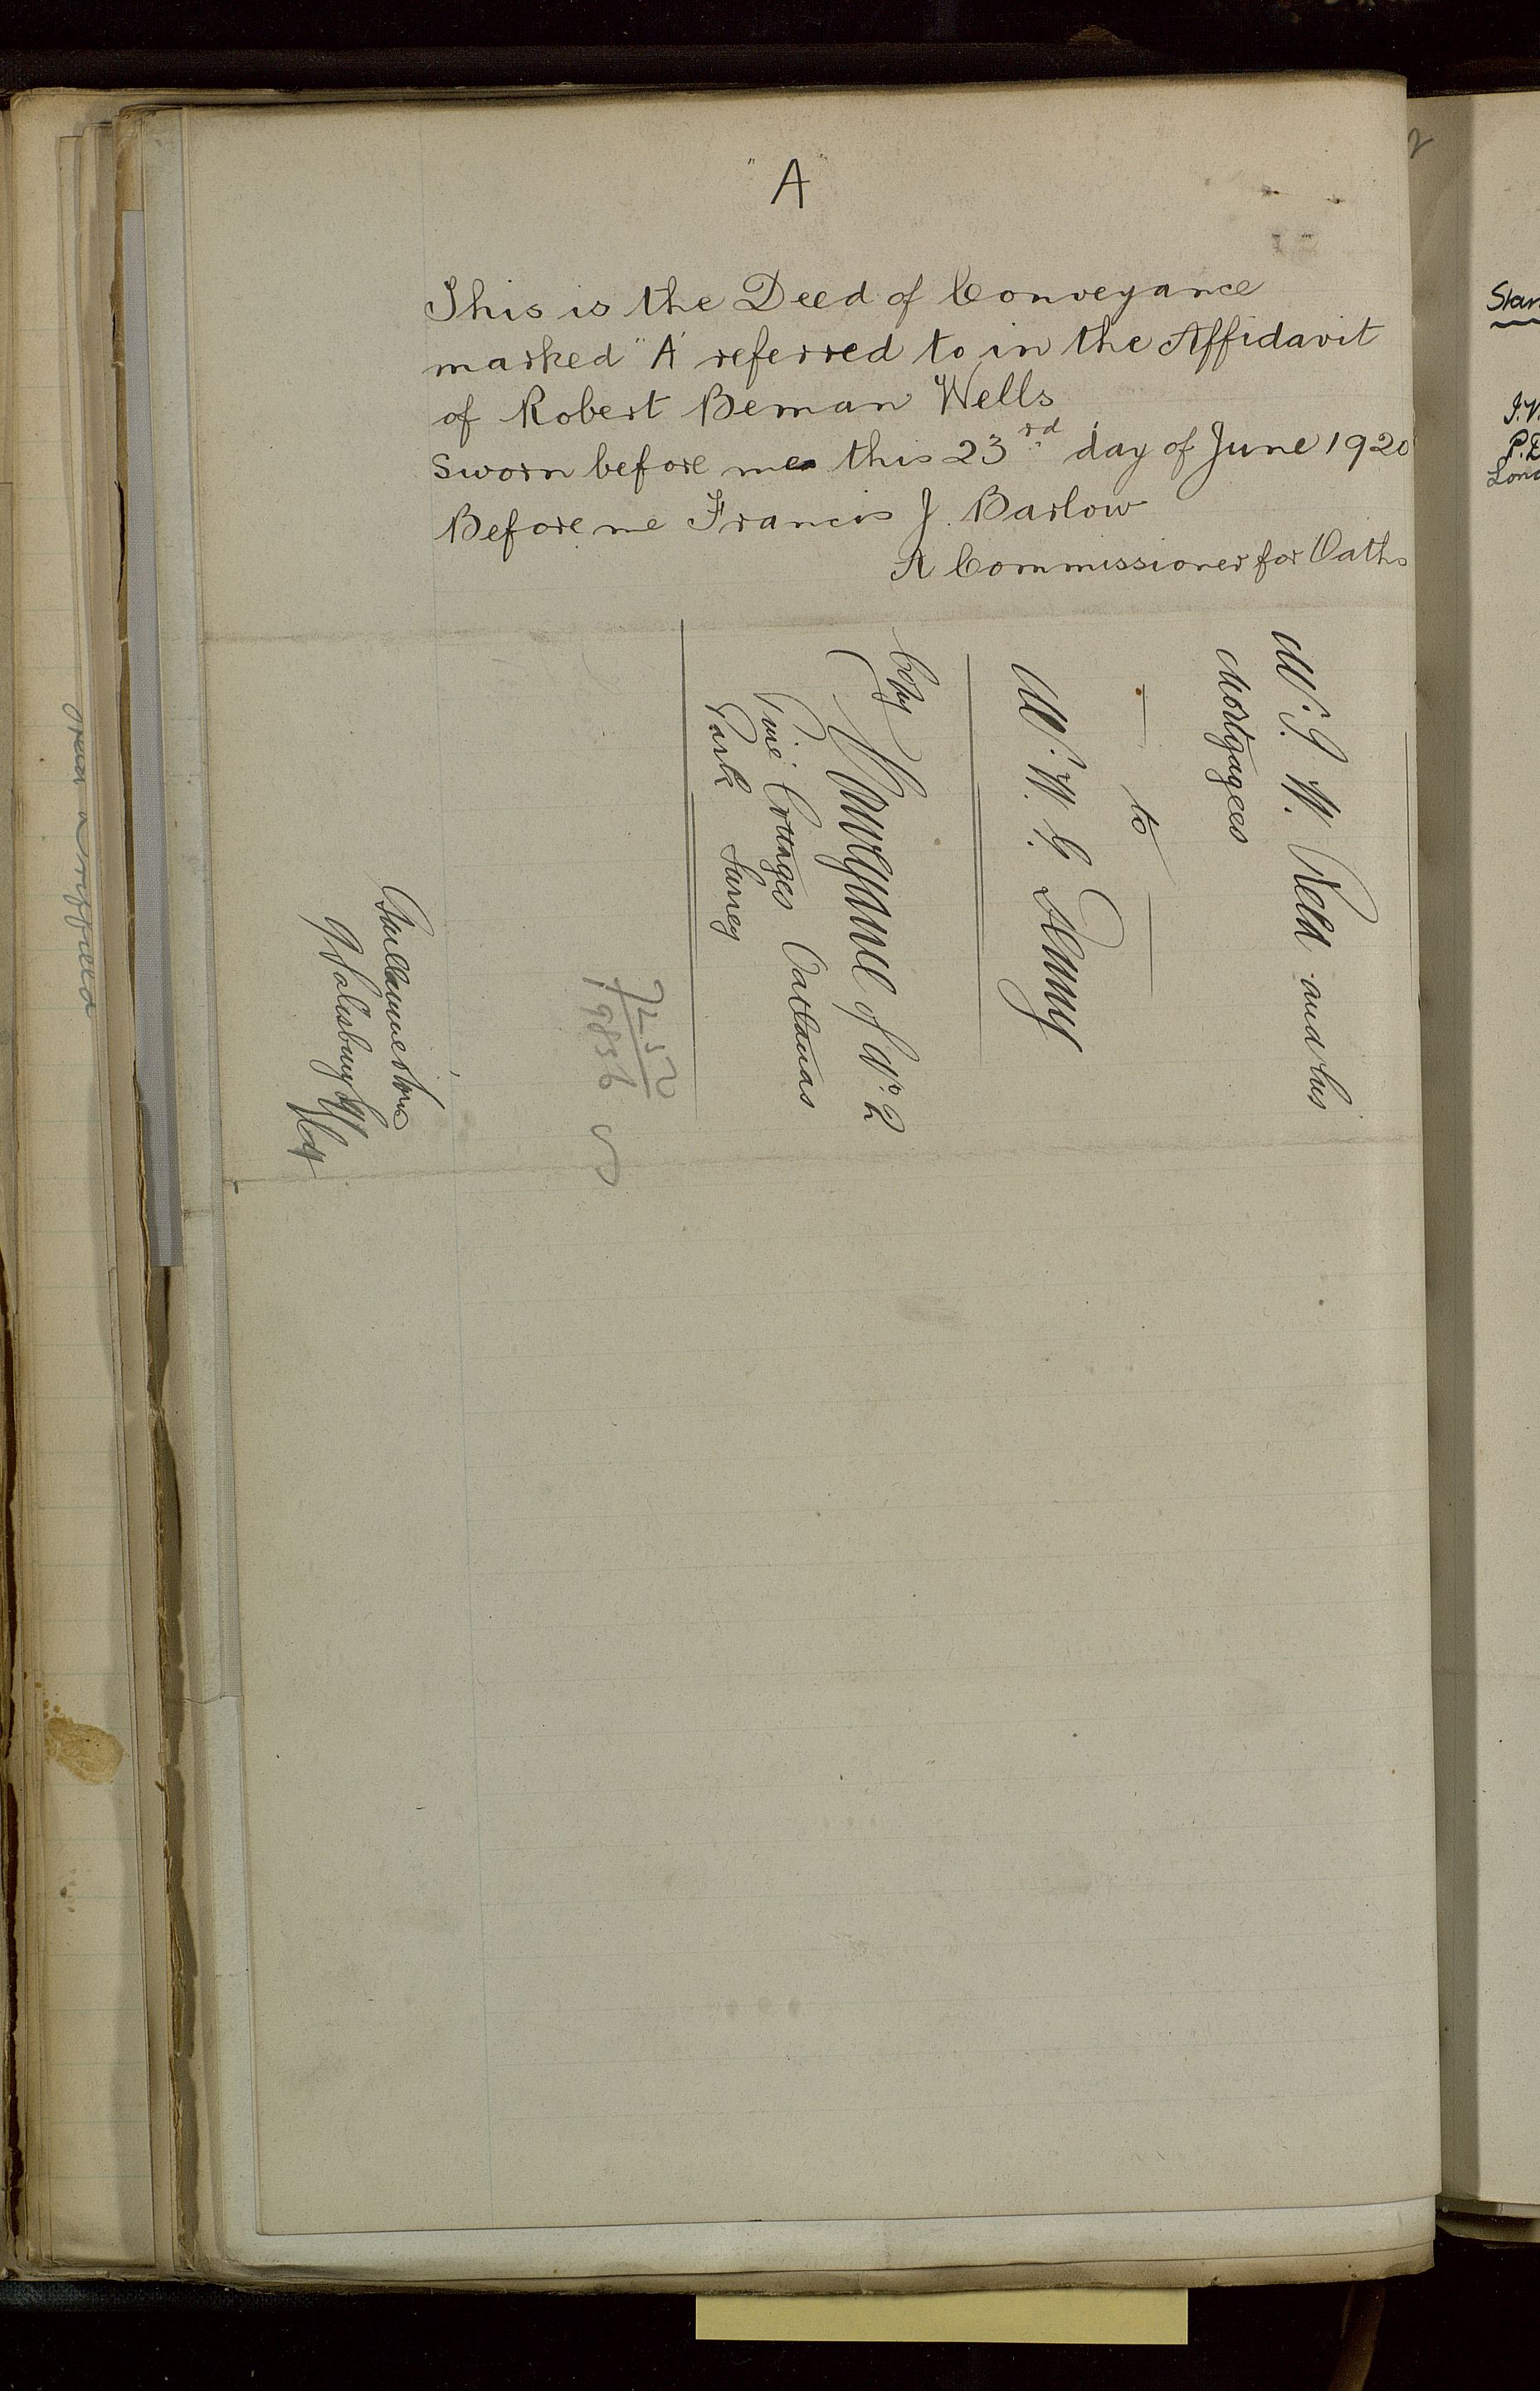 "A"
This is the Deed of Conveyance
marked "A" referred to in the Affidavit
of Robert Beman Wells
sworn before me this 23rd day of June 1920
Before me Francis J. Barlow
A Commissioner for Oaths
and his
Mortgagees
to
Copy
Conveyance of No. 2
Pine Cottages Oatlands
Park Surrey
7252
19836
9 Salisbury